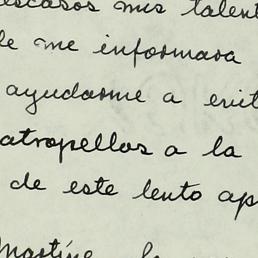 escasos mis talent
le me informara
ayudarme a evit
atropellos a la
de este lento ap